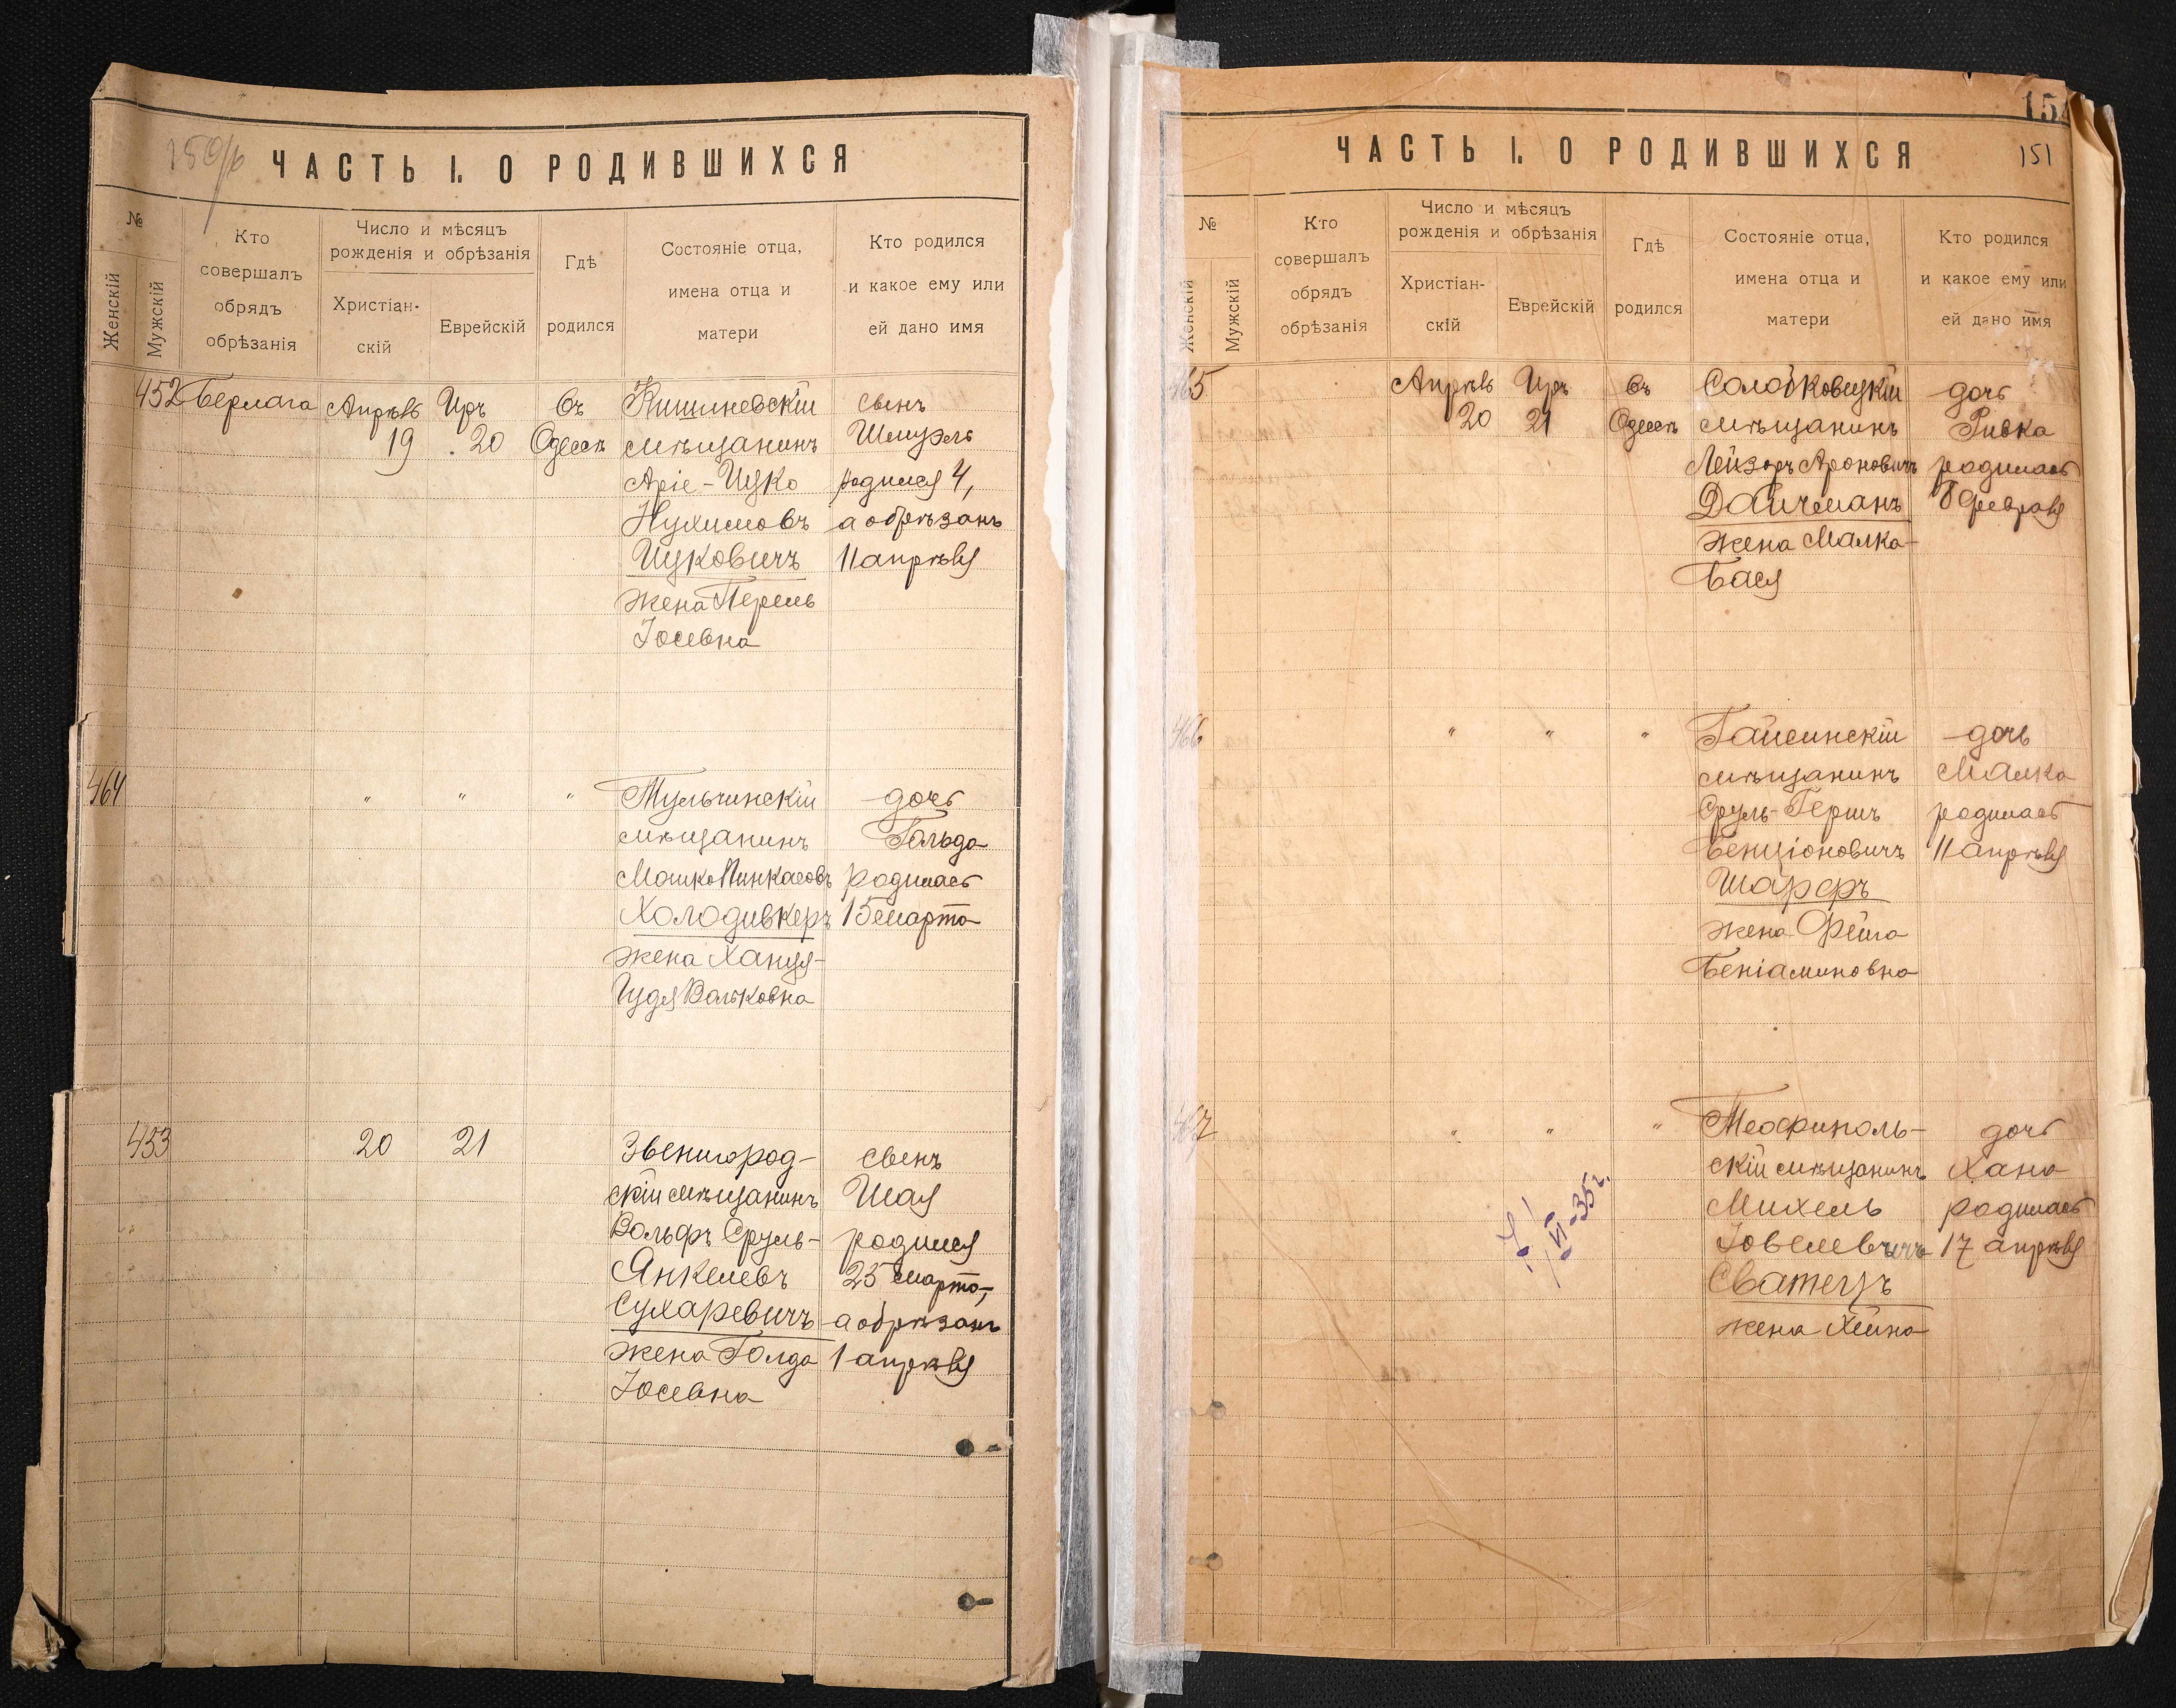 150/б
ЧАСТЬ I. О РОДИВШИХСЯ
№
Женскій
Мужскій
Кто
совершалъ
обрядъ
обрѣзанія
Число и мѣсяцъ
рожденія и обрѣзанія
Христіан-
скій
Еврейскій
Гдѣ
родился
Состояніе отца,
имена отца и
матери
Кто родился
и какое ему или
ей дано имя
452
Берлага
Апрѣль
19
Иръ
20
Въ
Одессѣ
Кишиневскій
мѣщанинъ
Аріе-Ицко
Нухимовъ
Ицковичъ
жена Перель
Іосевна
сынъ
Шмуэль
родился 4,
а обрѣзанъ
11 апрѣля
464
"
"
"
Тульчинскій
мѣщанинъ
Мошко Пинкасовъ
Холодивкеръ
жена Ханця-
Гудя Вольковна
дочь
Гольда
родилась
15 марта
453
20
21
Звенигород-
скій мѣщанинъ
Вольфъ Сруль-
Янкелевъ
Сухаревичъ
жена Голда
Іосевна
сынъ
Шая
родился
25 марта,
а обрѣзанъ
1 апрѣля
151
ЧАСТЬ I. О РОДИВШИХСЯ
151
№
Женскій
Мужскій
Кто
совершалъ
обрядъ
обрѣзанія
Число и мѣсяцъ
рожденія и обрѣзанія
Христіан-
скій
Еврейскій
Гдѣ
родился
Состояніе отца,
имена отца и
матери
Кто родился
и какое ему или
ей дано имя
465
Апрѣль
20
Иръ
21
Въ
Одессѣ
Солобковецкій
мѣщанинъ
Лейзоръ Ароновичъ
Дайчманъ
жена Малка-
Бася
дочь
Ривка
родилась
8 февраля
466
"
"
"
Гайсинскій
мѣщанинъ
Сруль-Гершъ
Бенціоновичъ
Шарфъ
жена Фейга
Беніаминовна
дочь
Малка
родилась
11 апрѣля
467
"
"
"
Теофиполь-
скій мѣщанинъ
Михель
Іовелевичъ
Сватецъ
жена Хейна
дочь
Хана
родилась
17 апрѣля
VI-35г.